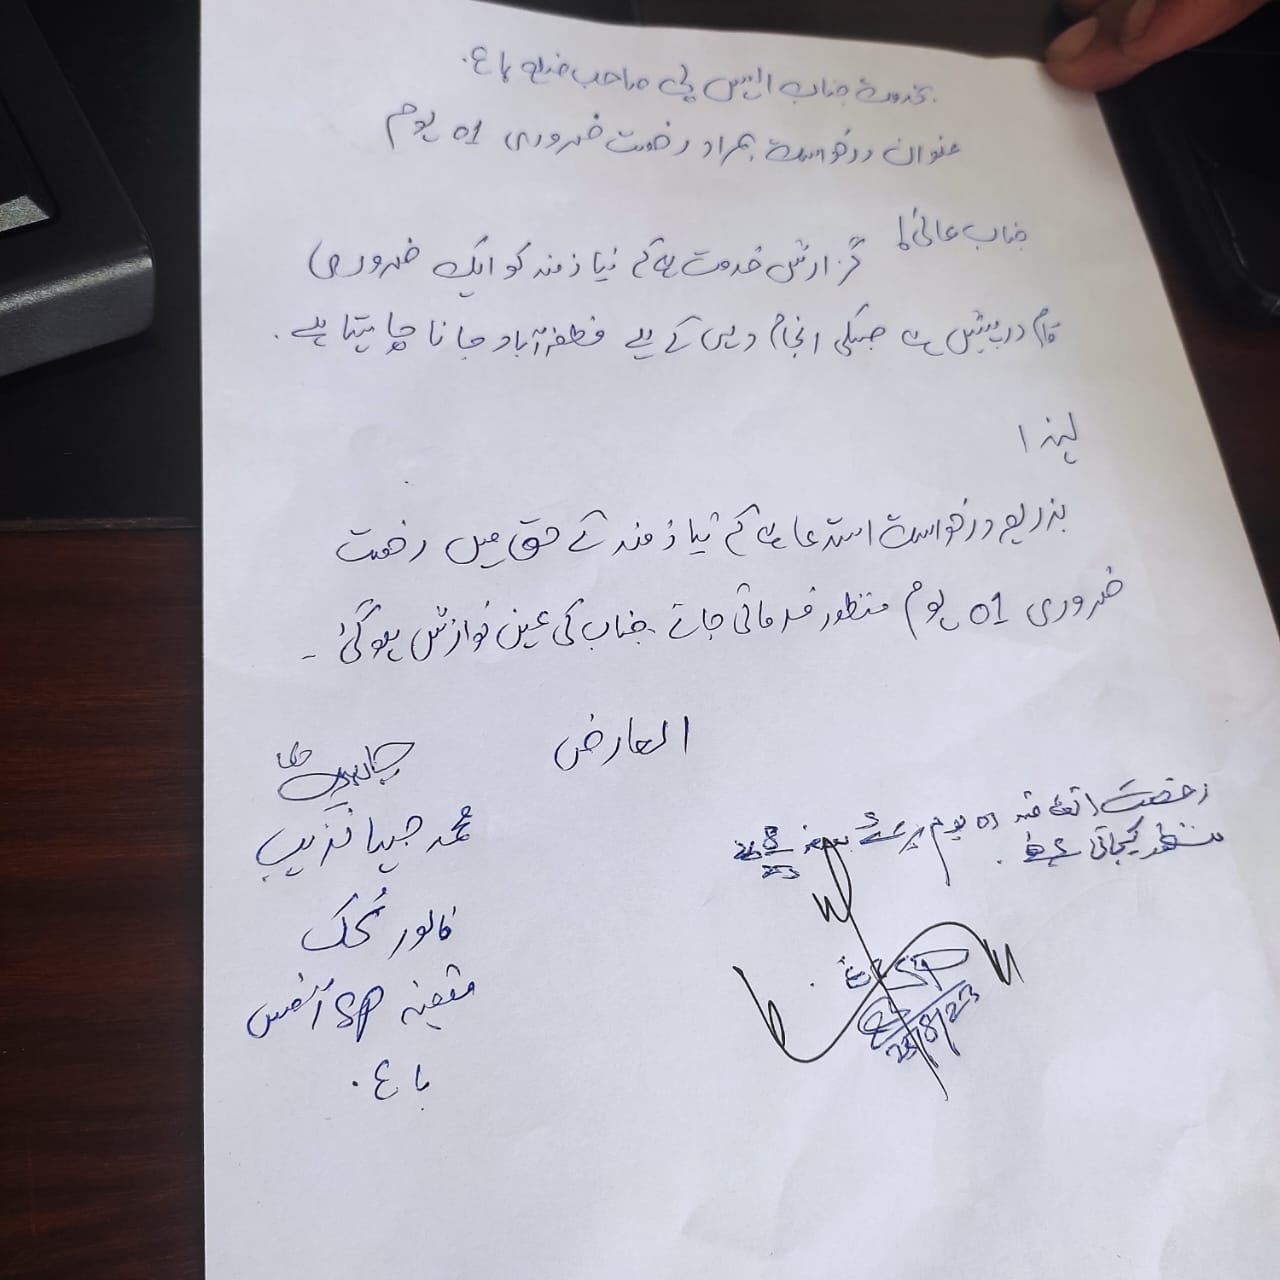 بخدمت جناب ایس پی صاحب ضلع باغ.
عنوان درخواست بمراد رخصت ضروری 01 یوم
جناب عالی!
گزارش خدمت ہے کہ نیاز مند کو ایک ضروری
کام درپیش ہے جسکی انجام دہی کے لیے مظفرآباد جانا چاہتا ہے.
لہذا
بذریعہ درخواست استدعا ہے کہ نیاز مند کے حق میں رخصت
ضروری 01 یوم منظور فرمائی جائے جناب کی عین نوازش ہوگی۔
العارض
محمد جہانزیب
متعینہ SP آفس
باغ.
رخصت اتفاقیہ 01 یوم
منظور کیجاتی ہے
SP باغ
25/8/23